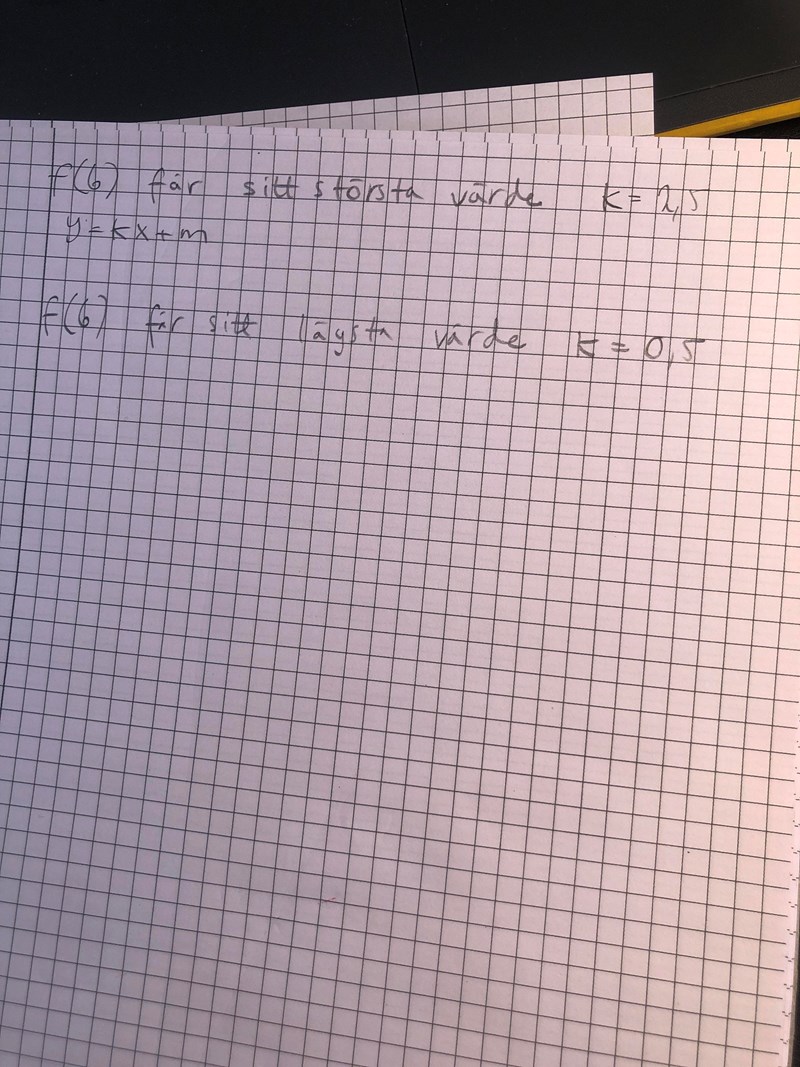 f(6) får sitt största värde k = 2,5
y = kx + m
f(6) får sitt lägsta värde k = 0,5